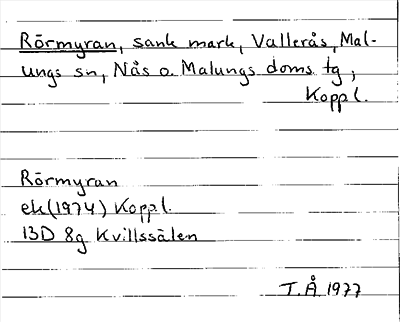 Rörmyran, sank mark, Vallerås, Mal-
ungs sn, Nås o. Malungs doms tg,
Koppl.
Rörmyran
ek(1974) Koppl.
13D 8g Kvillssälen
T.Å 1977